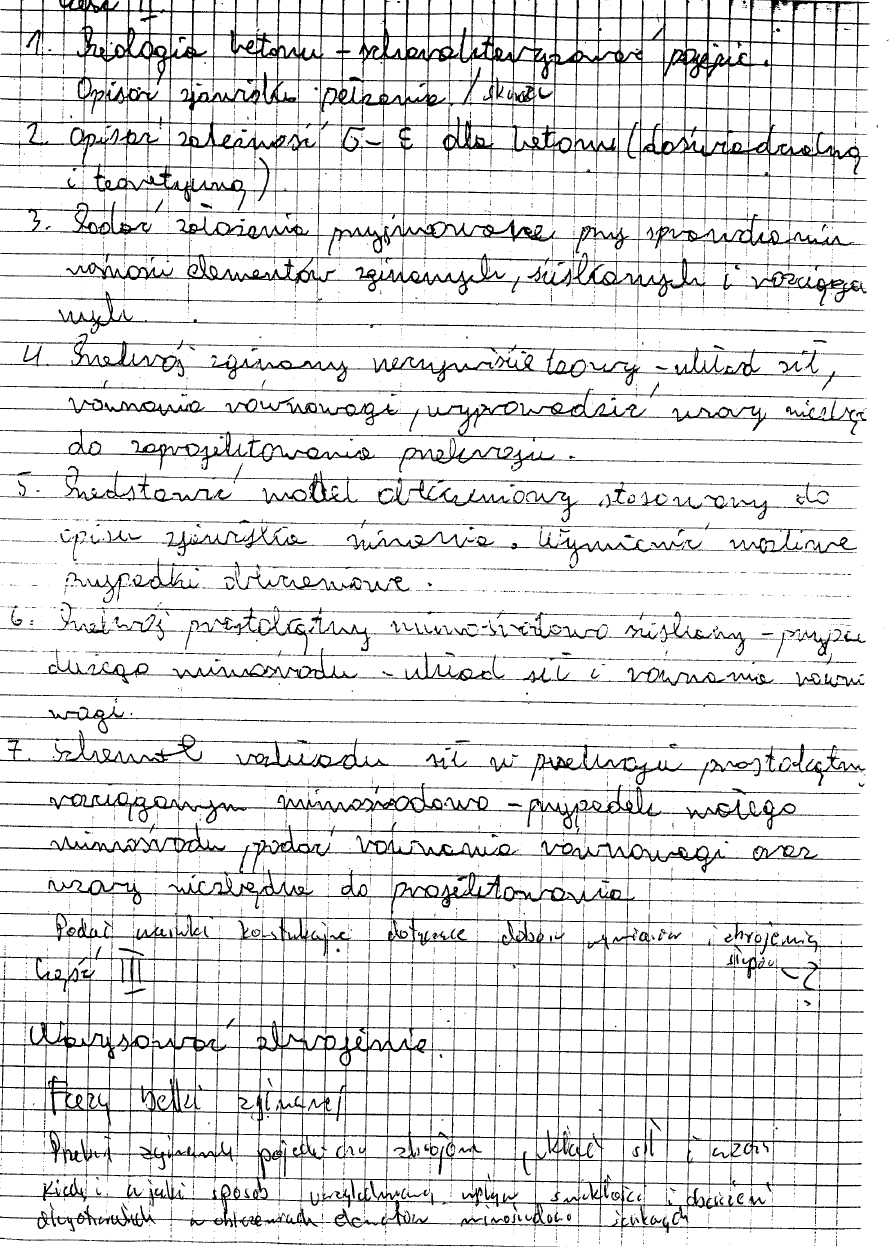 Część II.
1. Reologia betonu – scharakteryzować pojęcie.
Opisać zjawisko pełzania / skurcz
2. Opisać zależność σ – ε dla betonu (doświadczalną
i teoretyczną)
3. Podać założenia przyjmowane przy sprawdzaniu
nośności elementów zginanych, ściskanych i rozciąga
nych.
4. Przekrój zginany rzeczywiście teowy – układ sił,
równania równowagi, wyprowadzić wzory
do zaprojektowania przekroju.
5. Przedstawić model obliczeniowy stosowany do
opisu zjawiska ścinania. Wymienić możliwe
przypadki obliczeniowe.
6. Przekrój prostokątny mimośrodowo ściskany – przypa
dużego mimośrodu – układ sił i równania równo
wagi.
7. Schemat rozkładu sił w przekroju prostokątnym
rozciąganym mimośrodowo – przypadek małego
mimośrodu, podać równania równowagi oraz
wzory niezbędne do projektowania
Podać warunki dotyczące doboru wymiarów i zbrojenia
słupów – ?
Część III
Wyrysować zbrojenie.
Fazy belki zginanej
zginany pojedynczo zbrojony, układ sił i wzory
Kiedy i w jaki sposób uwzględniamy wpływ smukłości i obciążeń
długotrwałych w obliczeniach elementów mimośrodowo ściskanych